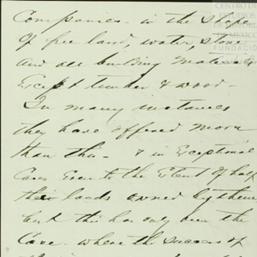 Companies in the shape
of free land, water, stone
and all building materials
Except timber & wood -
In many instances
they have offered more
than this - & in Exceptional
Cases Even to the Extent of half
their lands owned by them
but this has only been the
Case where the success of